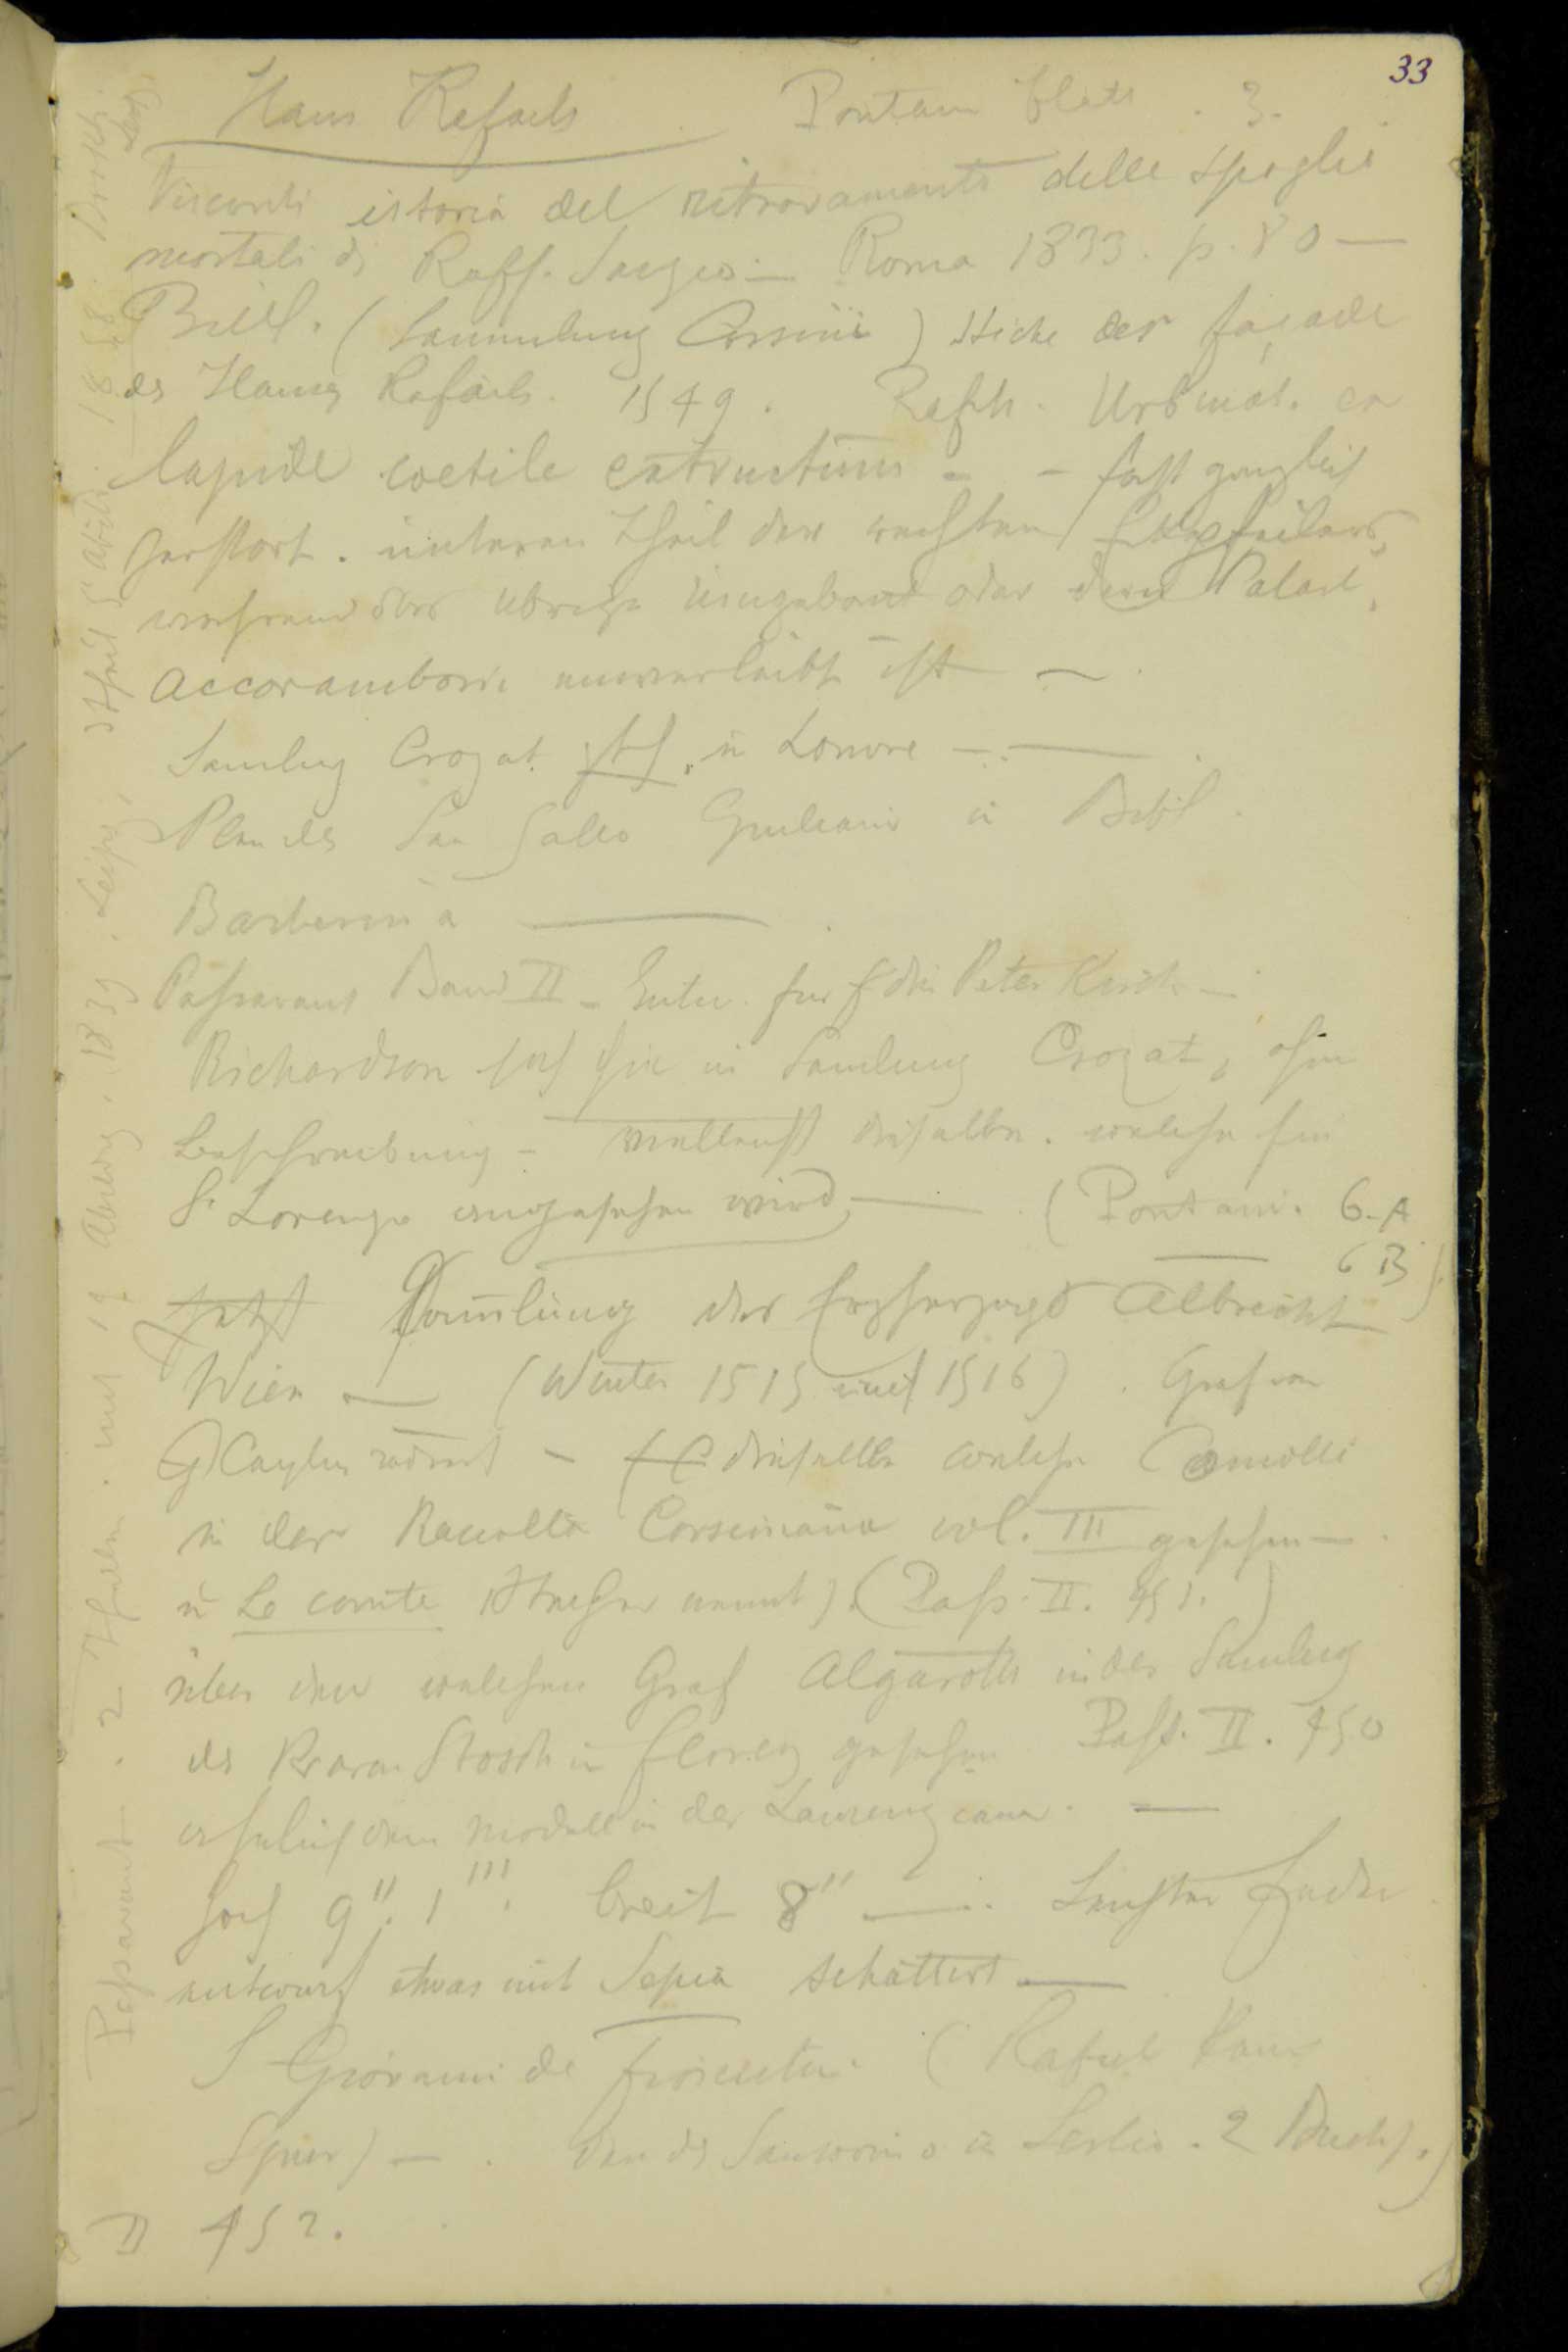 33
Haus Rafaels Pontani Blatt . 3.
Visconti istoria del ritrovamento delle spoglie
mortali di Raff. Sanzio — Roma 1833. p. 80 —
Bibl. (Sammlung Corsini) Stiche der façade
des Hauses Rafaels. 1549. Raph. Urbinat. ex
lapide coctile extructum - - fast gänzlich
zerstört. unteren Theil des rechten Eckpfeilers,
während das übrige umgebaut oder dem Palast,
Accoramboni einverleibt ist —
Samlung Crozat. jetzt in Louvre — —
Plan des San Gallo Giuliano in Bibl.
Barberina —
Passavant Band II — Entw. für die Peter Kirche —
Richardson sah sie in Samlung Crozat, ohne
Beschreibung — vielleicht dieselbe. welche für
S. Lorenzo angesehen wird — (Pontani. 6-A
6 B)
Jetzt Samlung des Erzherzogs Albrecht
Wien — (Winter 1515 auf 1516). Graf von
Caylus radirt — dieselbe welche Comolli
in der Raccolta Corsiniana vol. III gesehen —
u Le comte Stecher nennt) (Pass. II. 451.)
über den welchen Graf Algarotti in der Samlung
des Baron Stosch in Florenz gesehen Pass. II. 450
ähnlich dem Modell in der Laurenziana. —
hoch 9" 1'''. breit 8" —. Leichter Feder
entwurf etwas mit Sepia schattirt —
S Giovanni de Fiorentini. (Rafael
) — . des Sansovino in Serlio. 2 Buch).)
II 452.
Passavant. 2 Theilen. mit 14 Abbildung. 1839. Leipzig, 3 Theil 1858. Brockh.
Leipz.